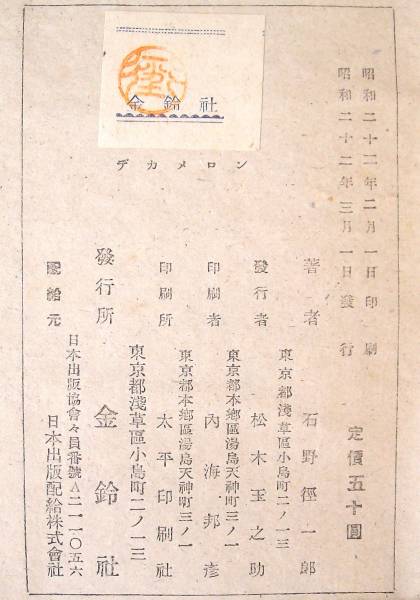 金鈴社
デカメロン
昭和二十二年二月一日印刷
昭和二十二年三月一日發行
定價五十圓
著者 石野徑一郎
東京都淺草區小島町二ノ一三
發行者 松木玉之助
東京都本鄕區湯島天神町三ノ一
印刷者 內海邦彥
東京都本鄕區湯島天神町三ノ一
印刷所 太平印刷社
東京都淺草區小島町二ノ一三
發行所 金鈴社
日本出版協會々員番號A二一一〇五六
配給元 日本出版配給株式會社